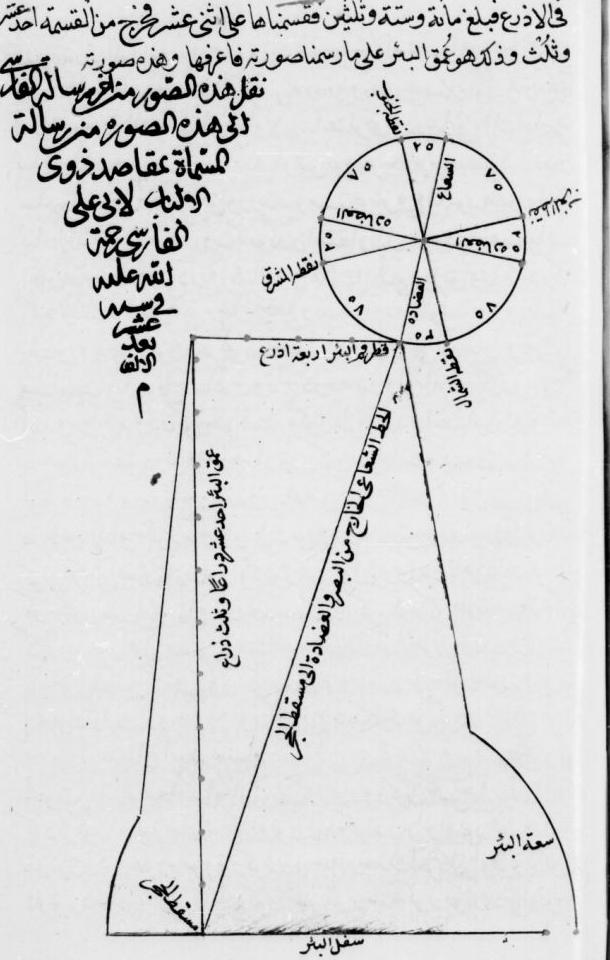 في الاذرع فبلغ مائة وستة وثلثين فقسمناها على اثنى عشر فخرج من القسمة احد عشر
وثلث وذلك هو عمق البئر على ما رسمنا صورته فاعرفها وهذه صورته
نقل هذه الصور من رسالة
الى هذه الصوره من رسالة
المسماة بمقاصد ذوى
الالباب لابي على
الفارسي رحمة
الله عليه
في سنه
عشر
بعد
الالف
م
نقطة الجنوب
٧٥
٧٥
الشعاع
العضاده
العضاده
نقطة المشرق
٧٥
٧٥
العضاده
نقطة الشمال
قطر فم البئر اربعة اذرع
عمق البئر احد عشر ذراعا وثلث ذراع
الخط الشعاعي الخارج من البصر والعضادة الى مسقط الحجر
سعة البئر
مسقط الحجر
سفل البئر